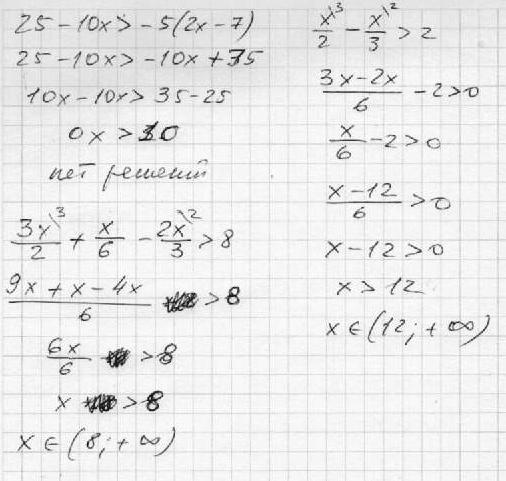 25 - 10x > -5(2x - 7)
25 - 10x > -10x + 35
10x - 10x > 35 - 25
0x > 10
нет решений
3x\3/2 + x/6 - 2x\2/3 > 8
(9x + x - 4x)/6 > 8
6x/6 > 8
x > 8
x ∈ (8; +∞)
x\3/2 - x\2/3 > 2
(3x - 2x)/6 - 2 > 0
x/6 - 2 > 0
(x - 12)/6 > 0
x - 12 > 0
x > 12
x ∈ (12; +∞)